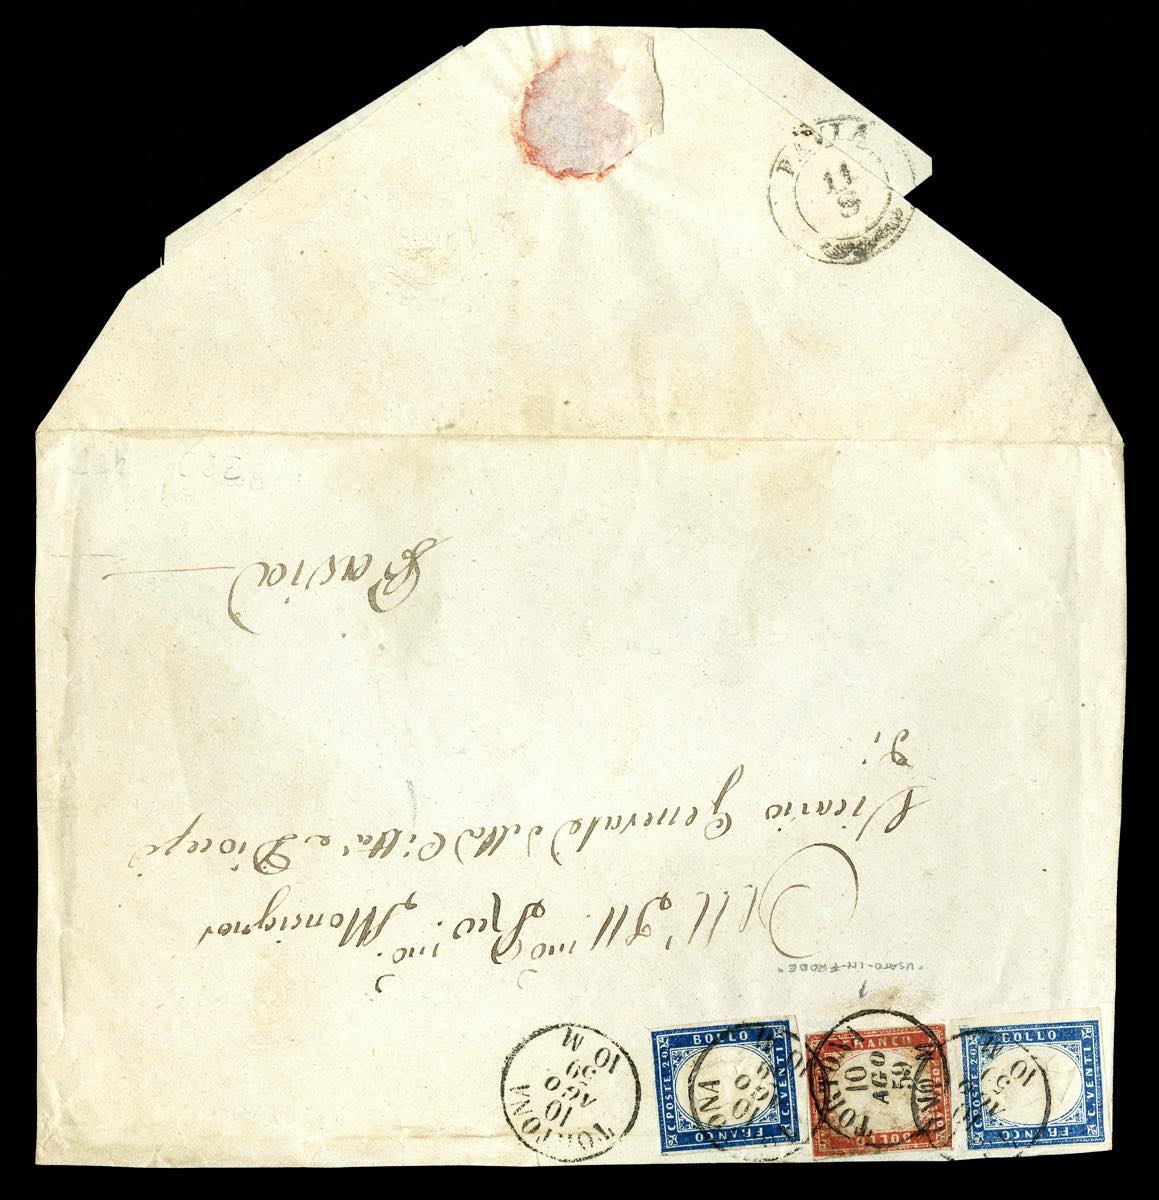 PAVIA
11
8
TORTONA
10
AGO
59
10 M
BOLLO
C.POSTE 20
C.VENTI
FRANCO
TORTONA
10
AGO
59
FRANCO
BOLLO
BOLLO
C.POSTE 20
C.VENTI
FRANCO
10 M
"USATO-IN-FRODE"
All' Ill.mo Rev.mo Monsignor
Vicario Generale della Città e Diocesi
di
Pavia